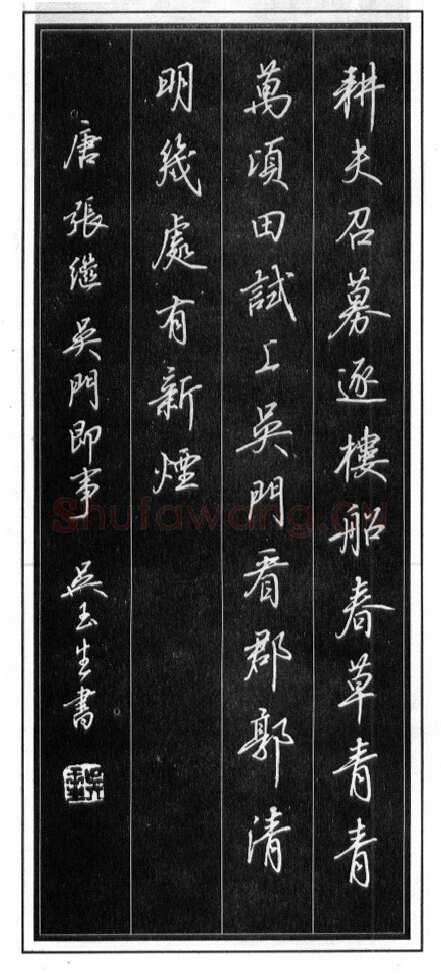 耕夫召募逐樓船春草青青
萬頃田試上吳門看郡郭清
明幾處有新煙
唐張繼吳門即事 吳玉生書
Shufawang.CN